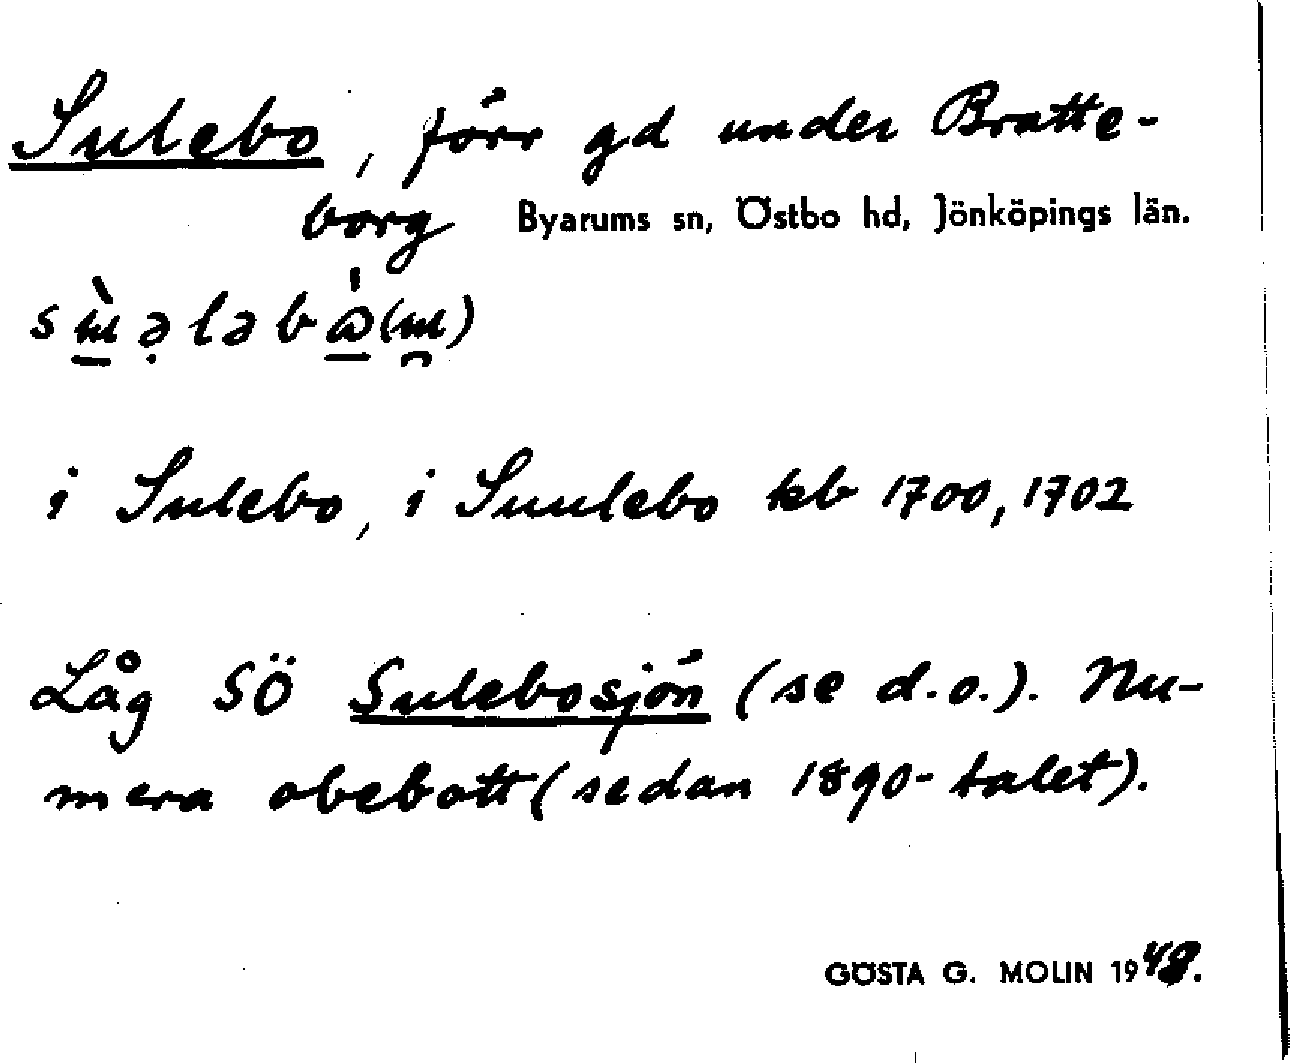 Sulebo, förr gd under Bratte-
borg Byarums sn, Östbo hd, Jönköpings län.
i Sulebo, i Suulebo kb 1700, 1702
Låg SÖ Sulebosjön (se d.o.). Nu-
mera obebott (sedan 1890-talet).
GÖSTA G. MOLIN 1948.